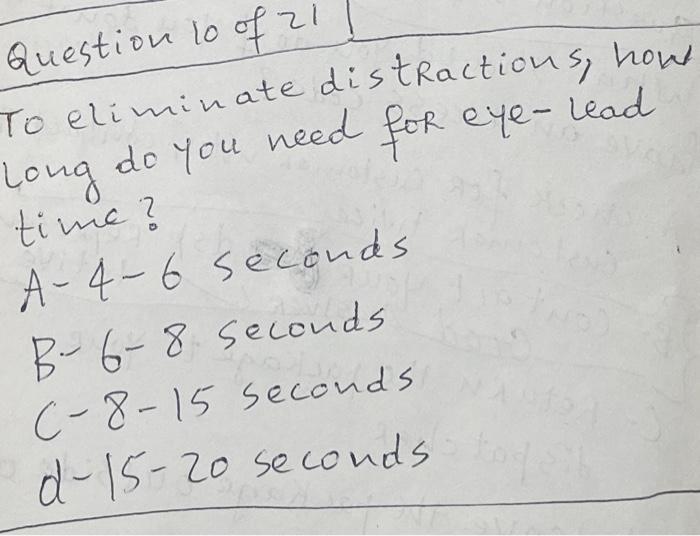 Question 10 of 21
To eliminate distRactions, how
Long do you need foR eye-lead
time?
A-4-6 seconds
B-6-8 seconds
C-8-15 seconds
d-15-20 seconds